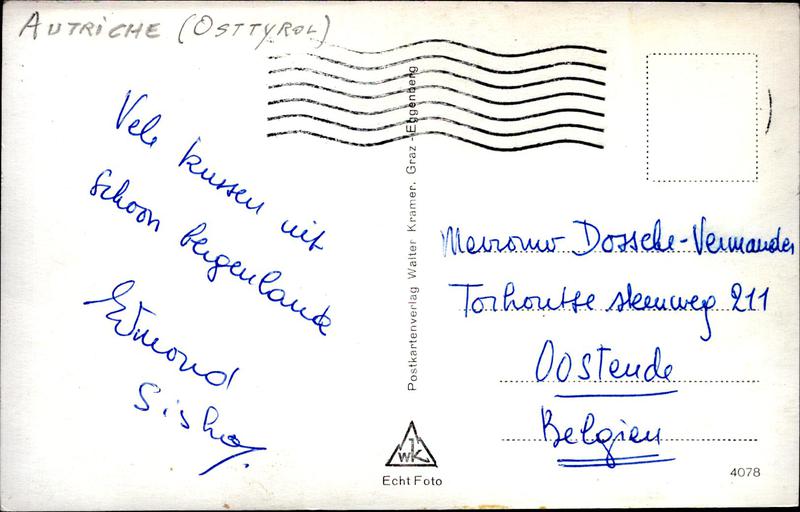 AUTRICHE (OSTTYROL)
Vele kussen uit
schoon bergenland
Edmond
Postkartenverlag Walter Kramer. Graz - Eggenberg
WK
Echt Foto
Mevrouw Dossche-Vermander
Torhoutse steenweg 211
Oostende
Belgien
4078